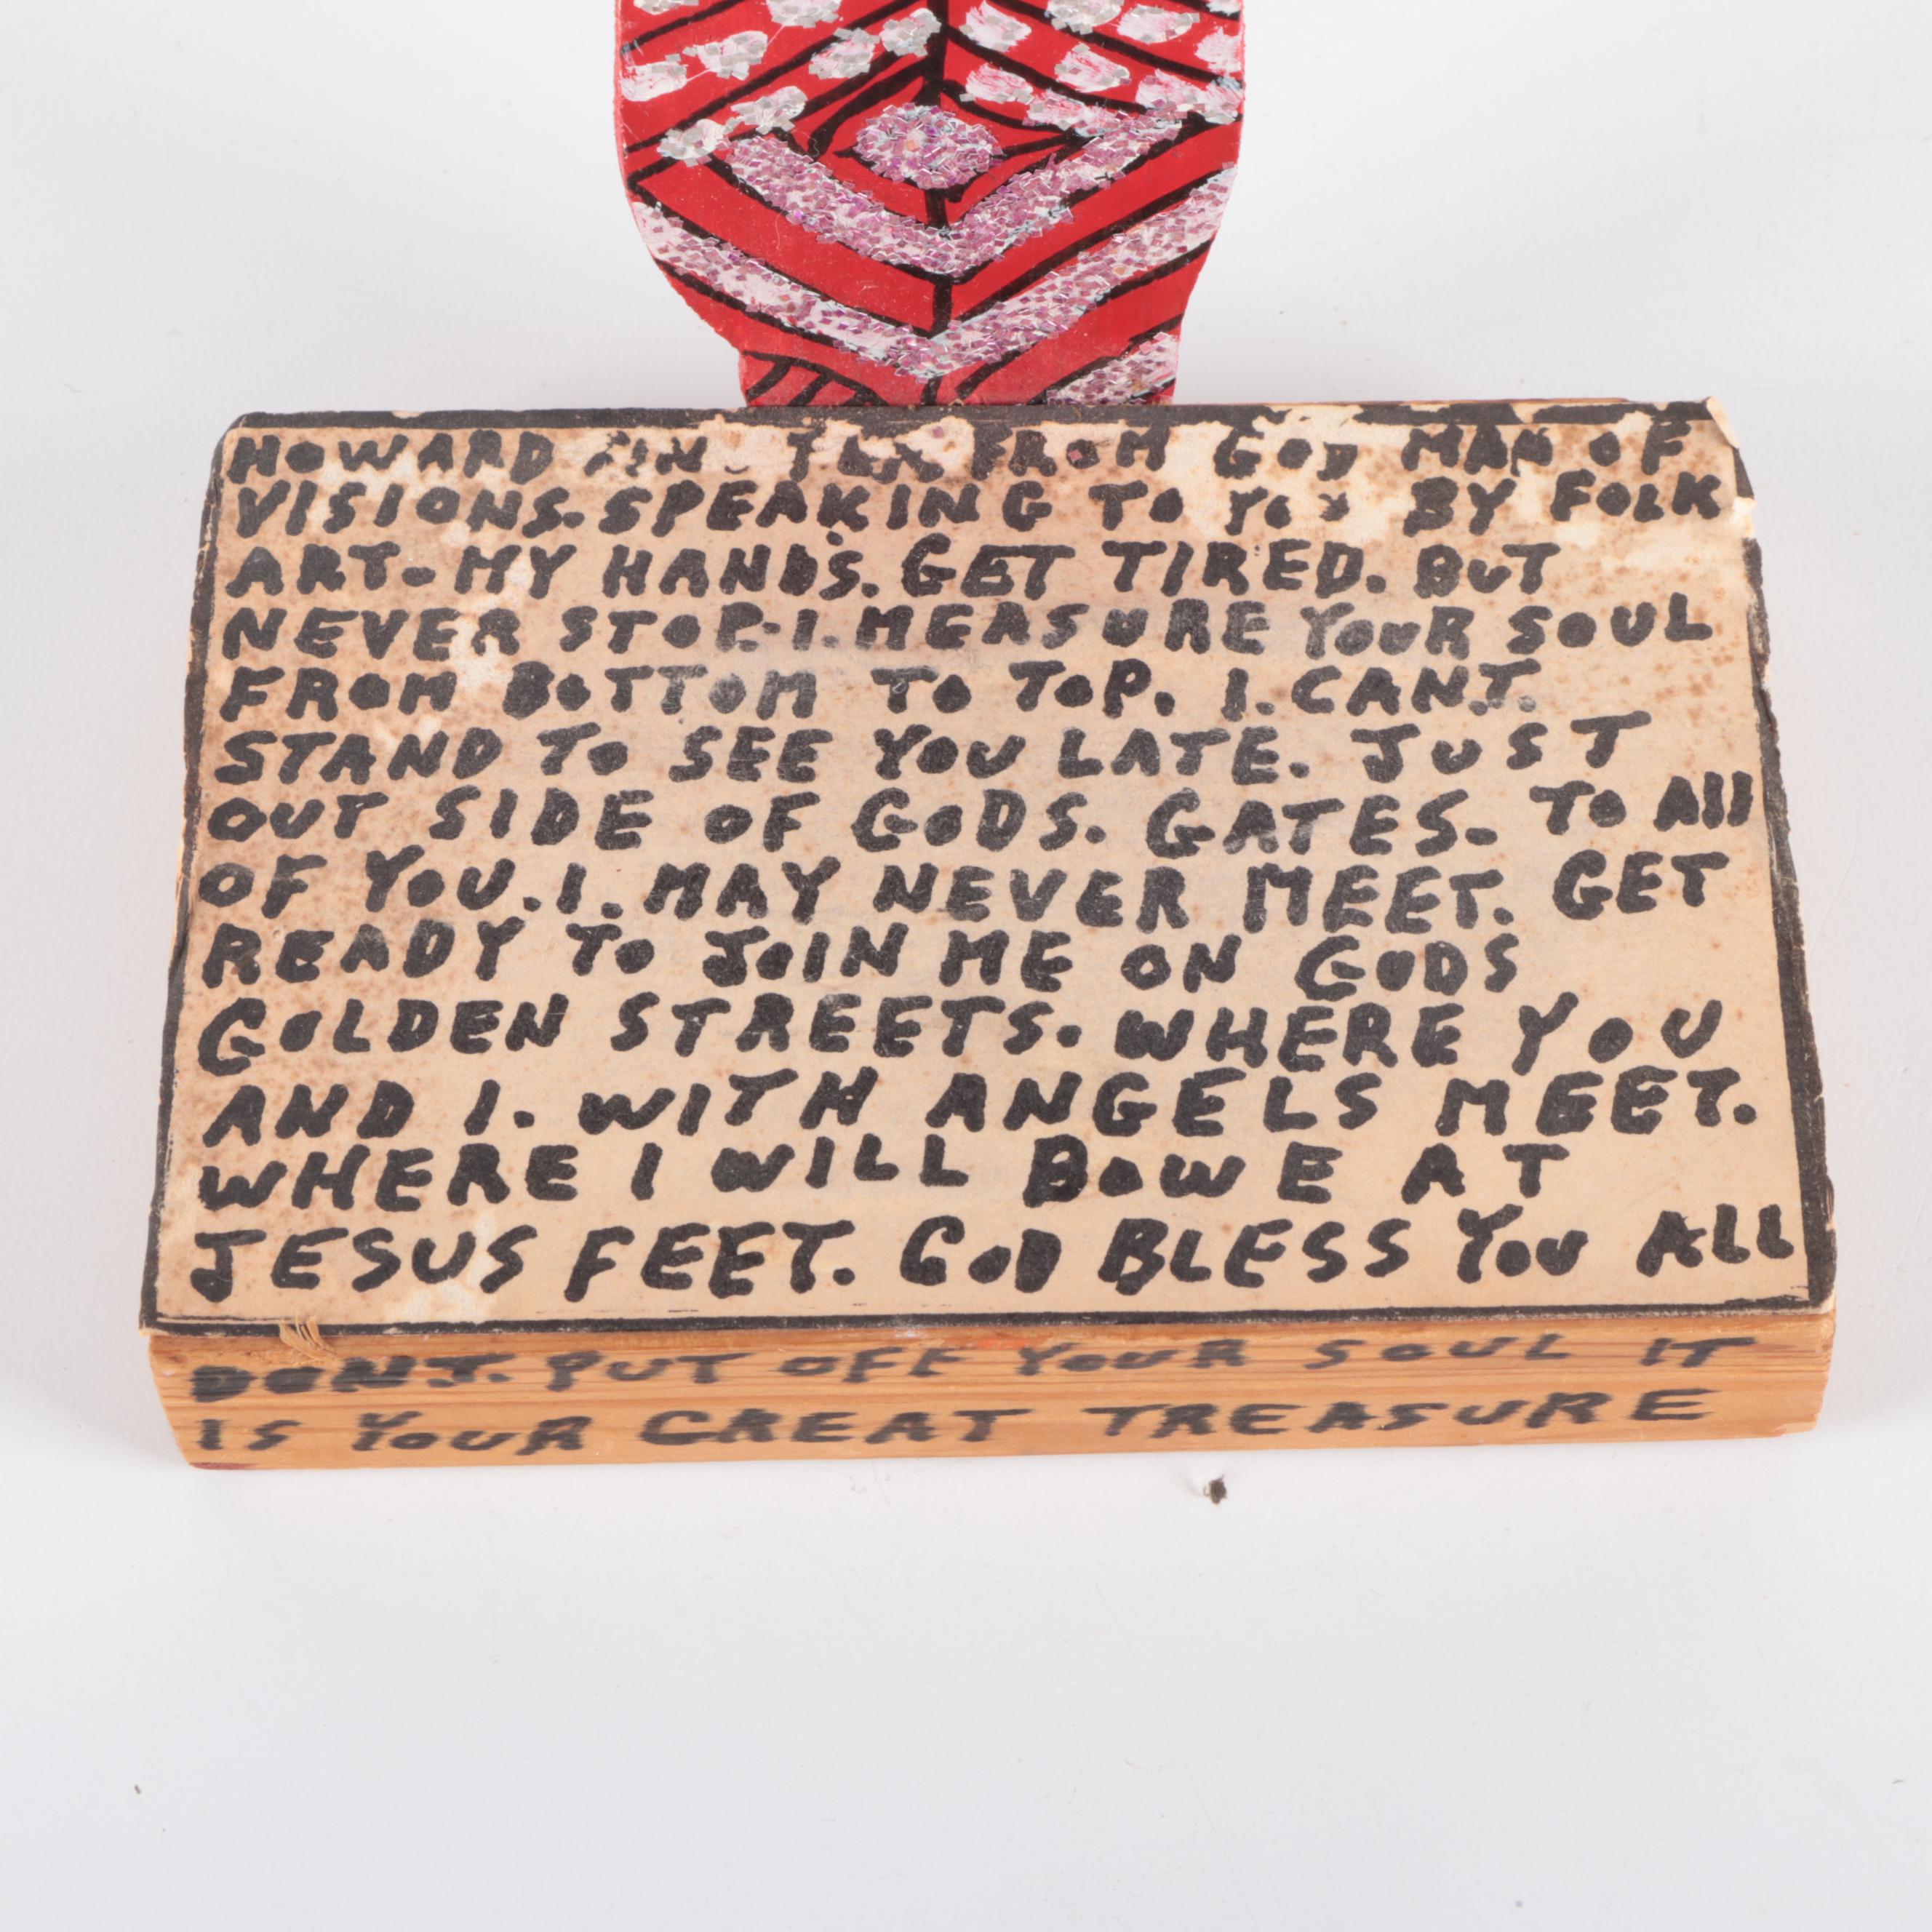 HOWARD FROM GOD MAN OF
VISIONS. SPEAKING TO YOU BY FOLK
ART- MY HANDS. GET TIRED. BUT
NEVER STOP.-I. MEASURE YOUR SOUL
FROM BOTTOM TO TOP. I. CANT.
STAND TO SEE YOU LATE. JUST
OUT SIDE OF GODS. GATES. TO All
OF YOU. I. MAY NEVER MEET. GET
READY TO JOIN ME ON GODS
GOLDEN STREETS. WHERE YOU
AND I. WITH ANGELS MEET.
WHERE I WILL BOWE AT
JESUS FEET. GOD BLESS YOU ALL
DONT. PUT OFF YOUR SOUL IT
IS YOUR GREAT TREASURE